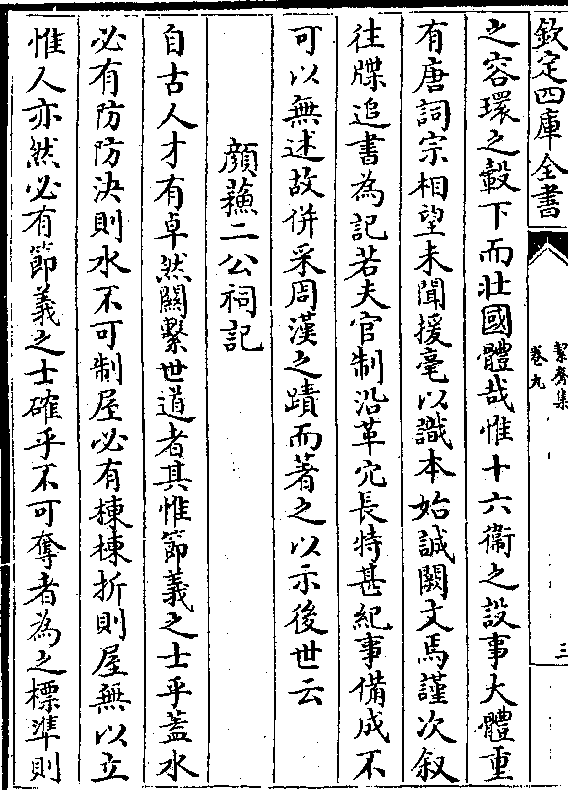 欽定四庫全書
絜齋集
卷九
三
之容環之轂下而壯國體哉惟十六衞之設事大體重
有唐詞宗相望未聞援毫以識本始誠闕文焉謹次叙
往牒追書為記若夫官制沿革宂長特甚紀事備成不
可以無述故併采周漢之蹟而著之以示後世云
顔蘓二公祠記
自古人才有卓然關繫世道者其惟節義之士乎蓋水
必有防防決則水不可制屋必有棟棟折則屋無以立
惟人亦然必有節義之士確乎不可奪者為之標準則